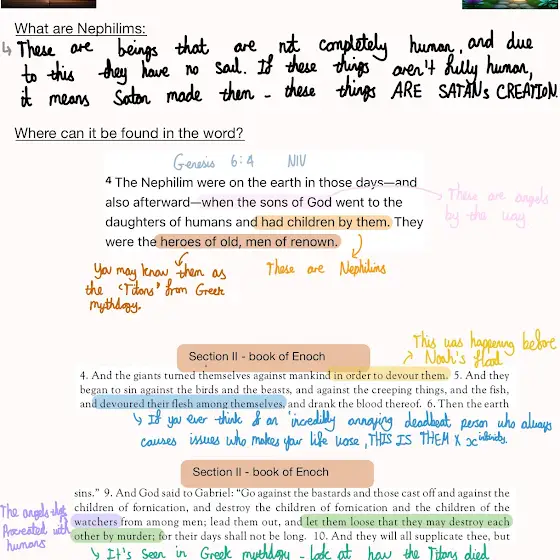 What are Nephilims:
↳ These are beings that are not completely human, and due
to this they have no soul. If these things aren't fully human,
it means Satan made them - these things ARE SATANs CREATION.
Where can it be found in the word?
Genesis 6:4 NIV
4 The Nephilim were on the earth in those days—and
also afterward—when the sons of God went to the
daughters of humans and had children by them. They
were the heroes of old, men of renown.
These are angels
by the way
You may know them as
the 'Titans' from Greek
mythology.
These are Nephilims
This was happening before
Noah's flood
Section II - book of Enoch
4. And the giants turned themselves against mankind in order to devour them. 5. And they
began to sin against the birds and the beasts, and against the creeping things, and the fish,
and devoured their flesh among themselves, and drank the blood thereof. 6. Then the earth
↳ If you ever think of an incredibly annoying deadbeat person who always
causes issues who makes your life worse, THIS IS THEM X x infinity.
Section II - book of Enoch
sins." 9. And God said to Gabriel: "Go against the bastards and those cast off and against the
children of fornication, and destroy the children of fornication and the children of the
watchers from among men; lead them out, and let them loose that they may destroy each
other by murder; for their days shall not be long. 10. And they will all supplicate thee, but
The angels that
Procreated with
humans
↳ It's seen in Greek mythology - look at how the Titans died